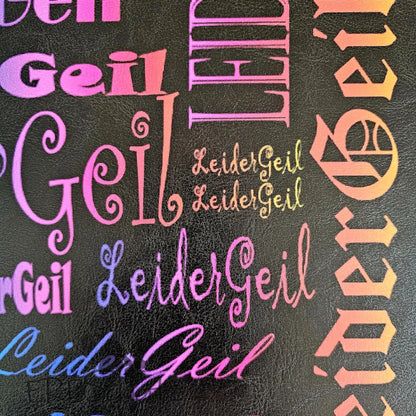 Geil
LEID
Geil
LeiderGeil
LeiderGeil
rGeil
LeiderGeil
LeiderGeil
eiderGeil